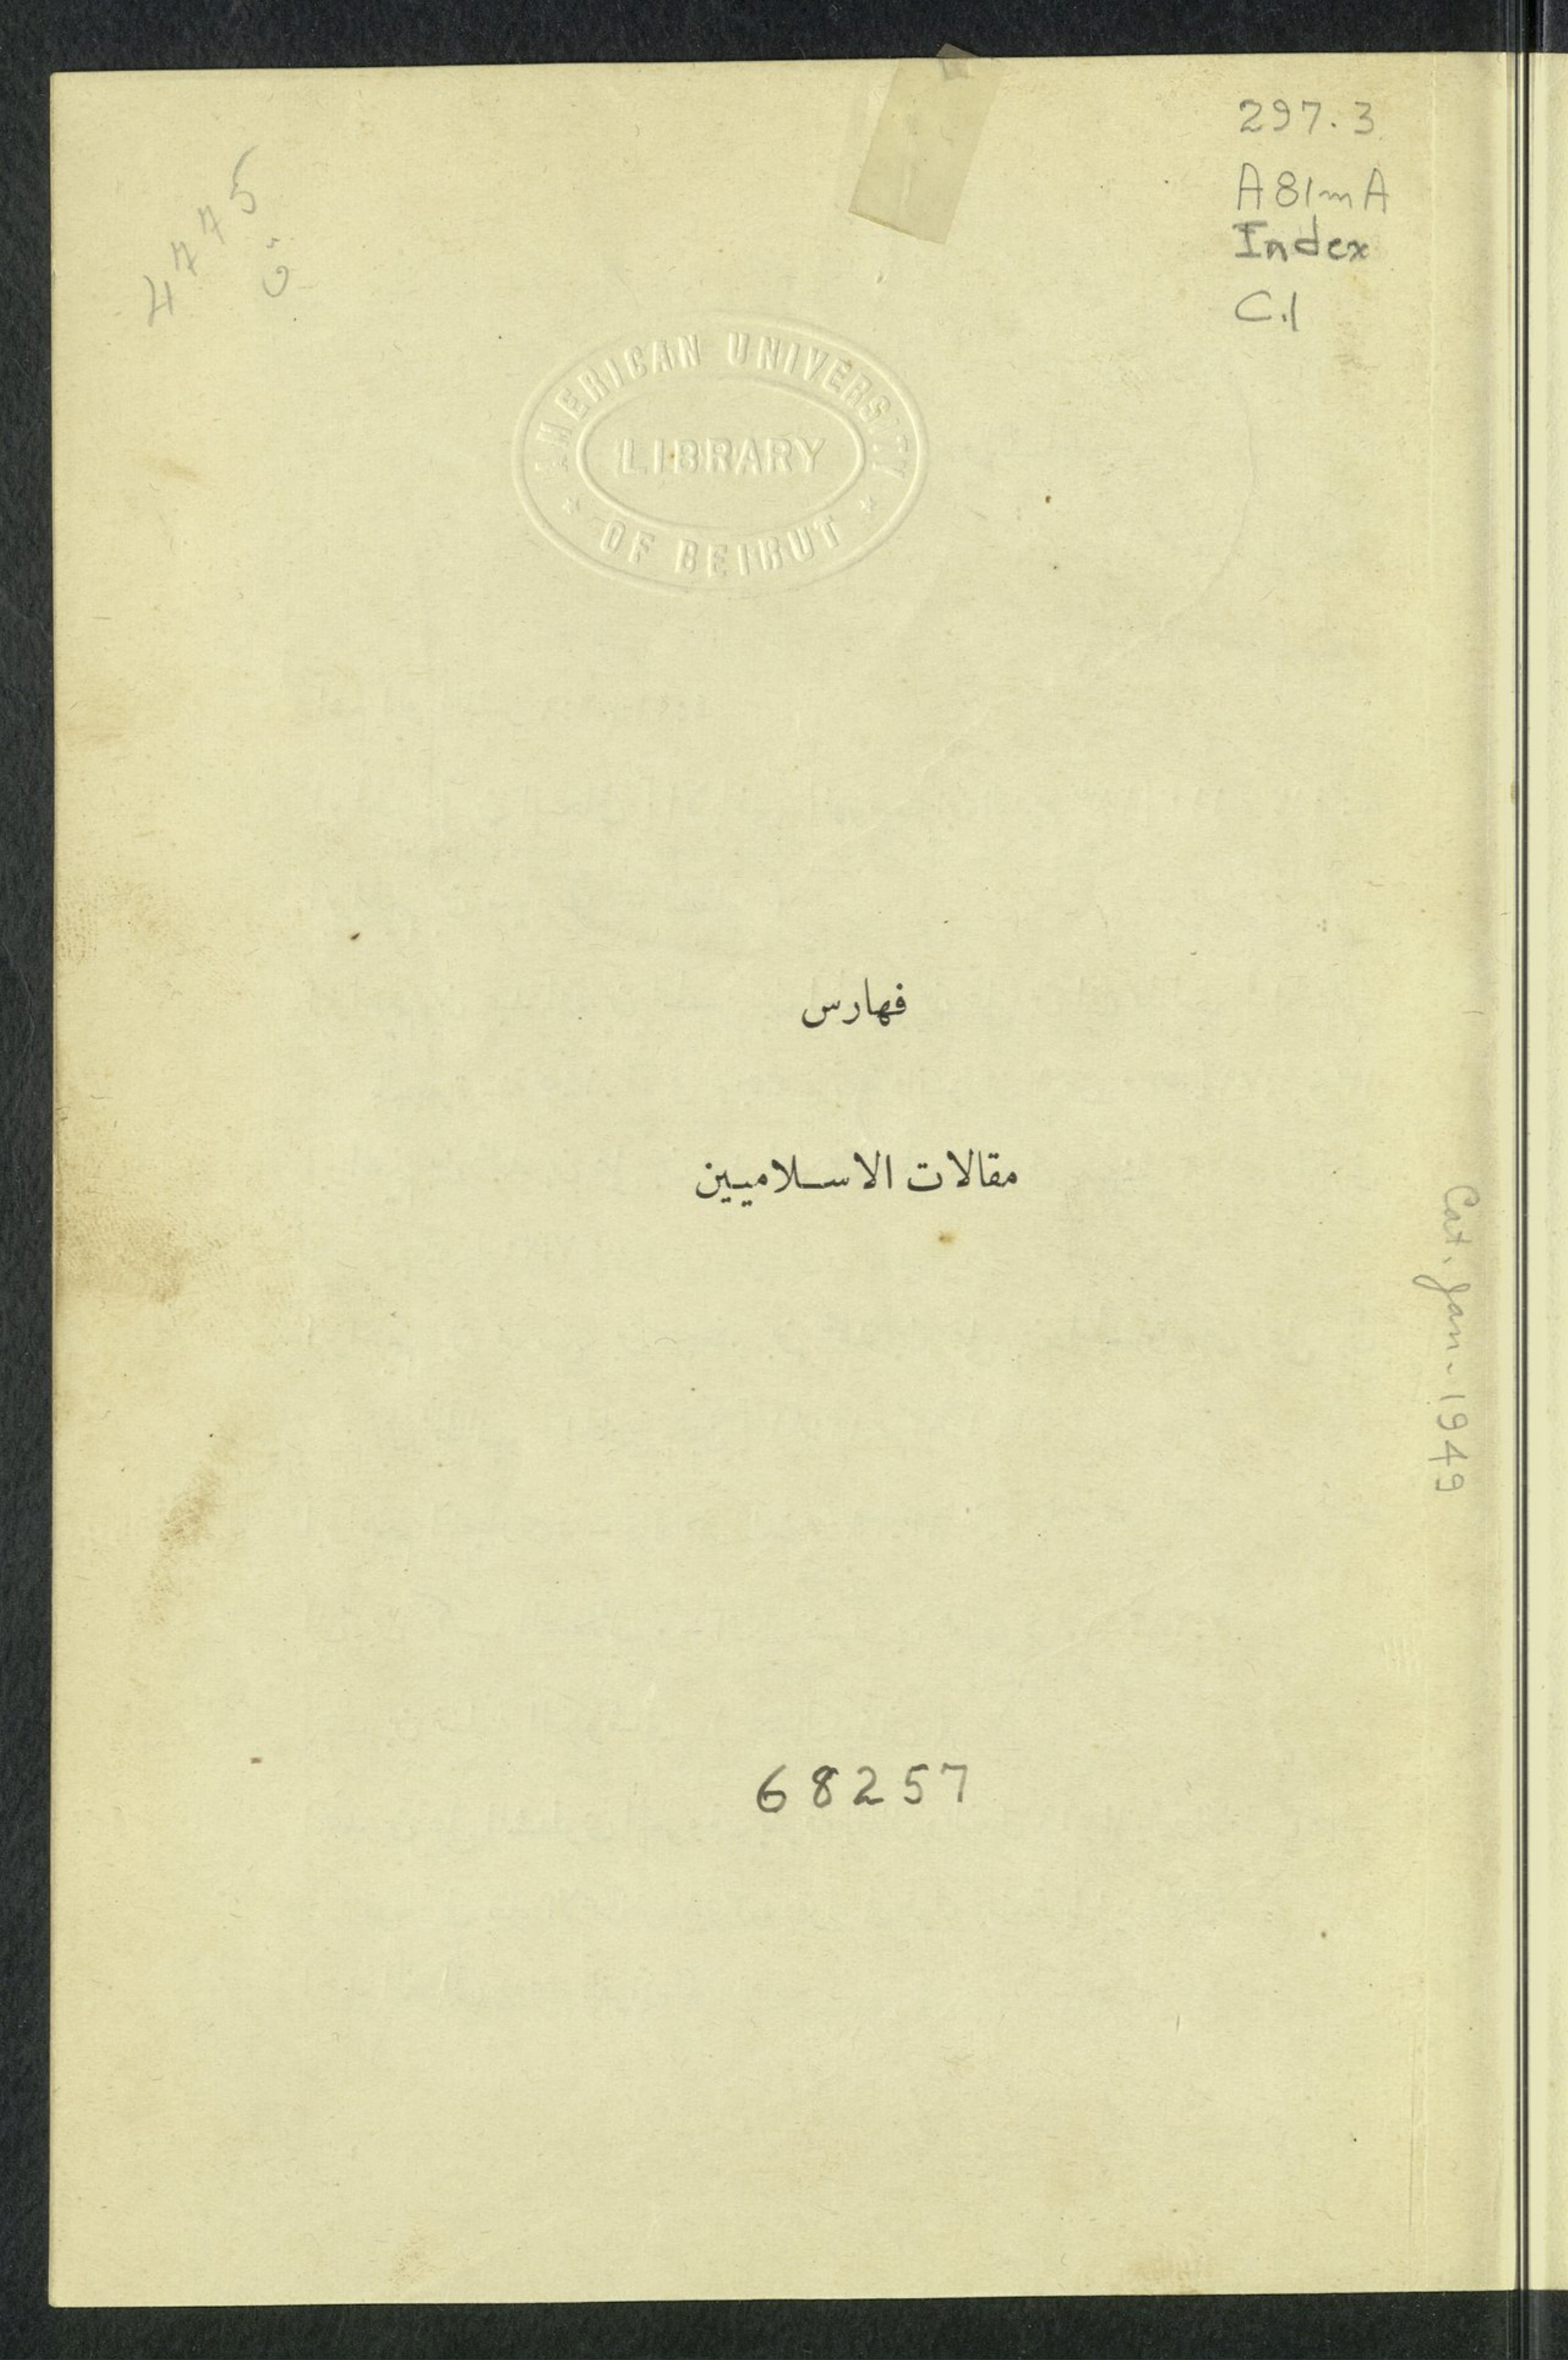 297.3
A81mA
Index
C.1
AMERICAN UNIVERSITY
LIBRARY
OF BEIRUT
فهارس
مقالات الاسلاميين
Cat. Jan. 1949
68257